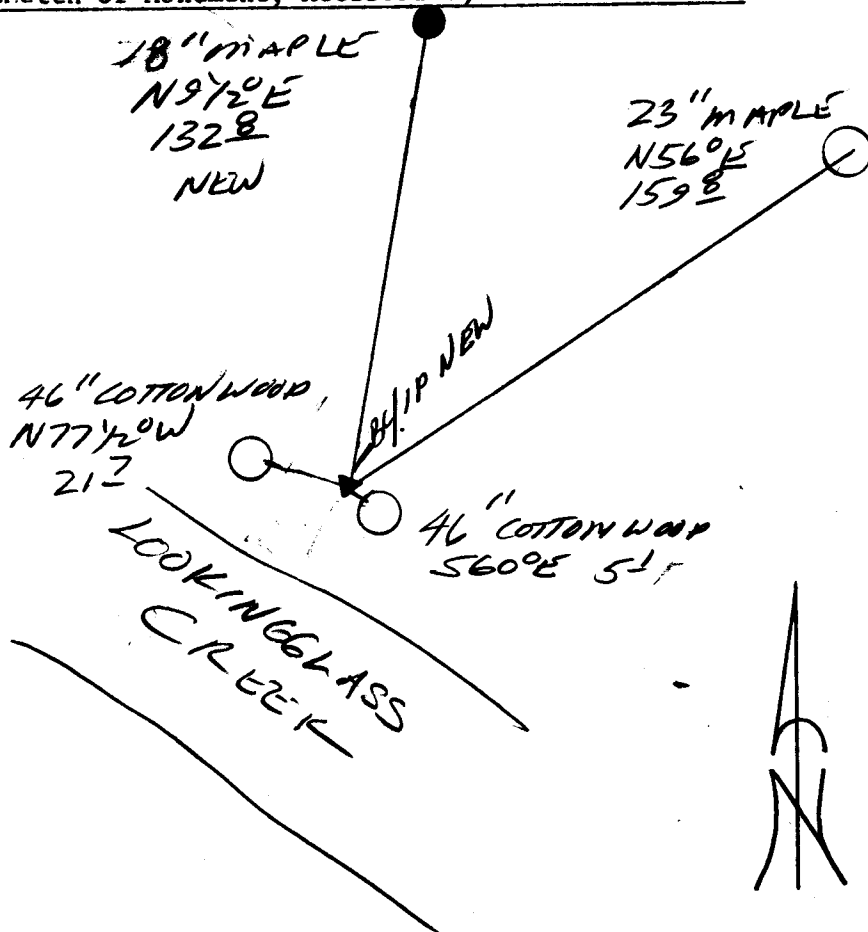 18" MAPLE
N9½°E
132 8
NEW
23" MAPLE
N56°E
159 8
IP NEW
46" COTTONWOOD
N77½°W
21 7
46" COTTONWOOD
S60°E 5 1
LOOKINGGLASS
CREEK
N